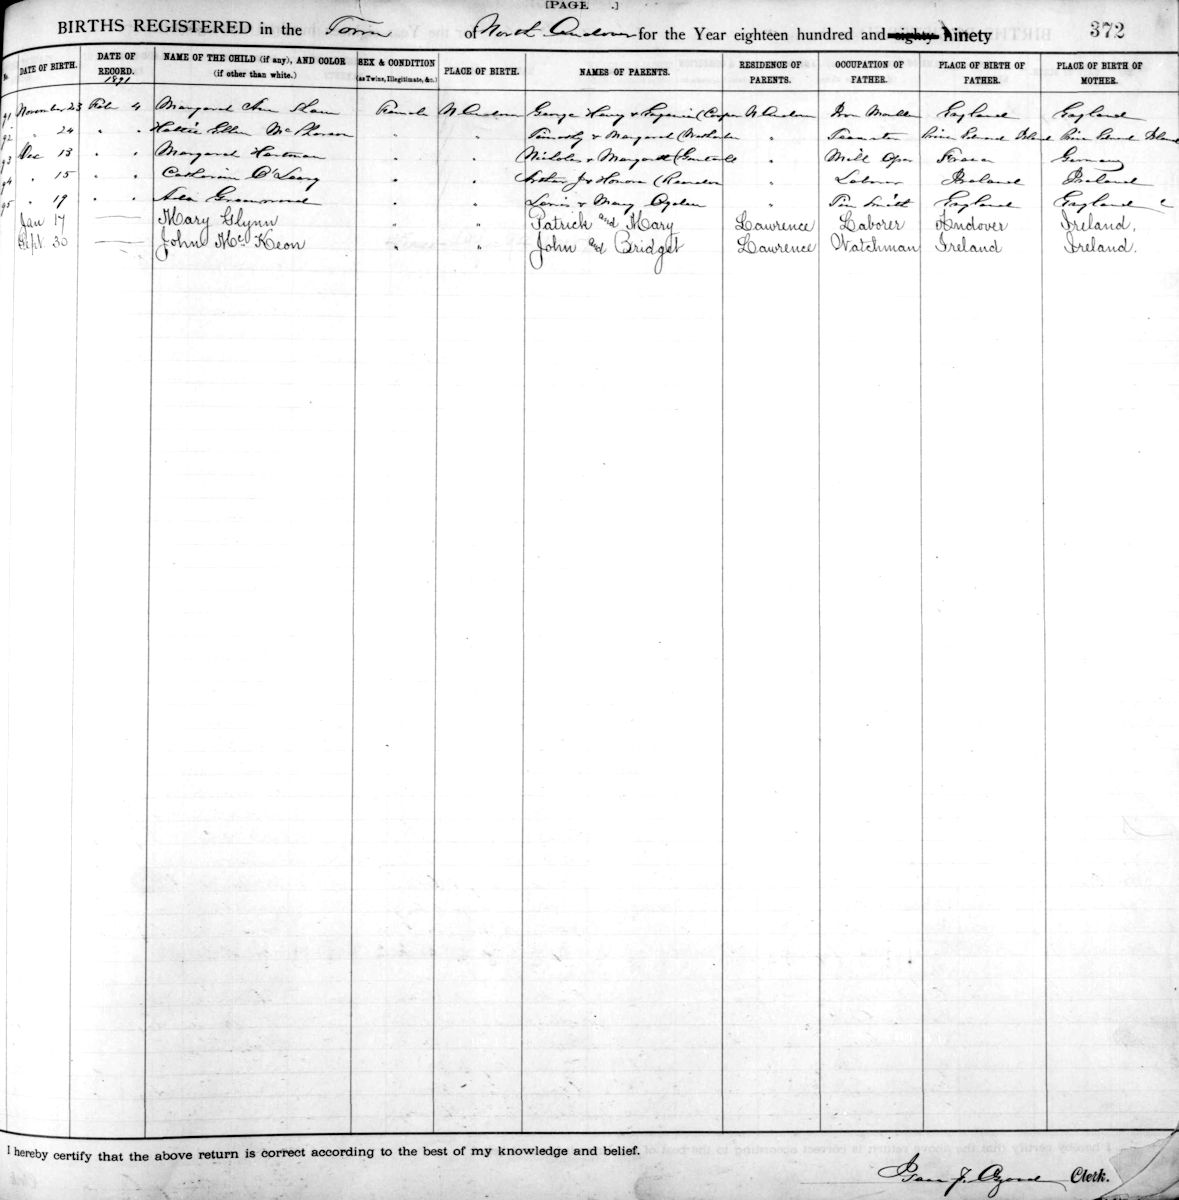 [PAGE .]
BIRTHS REGISTERED in the Town of North Andover for the Year eighteen hundred and eighty ninety 372
No. DATE OF BIRTH. DATE OF RECORD. 1891 NAME OF THE CHILD (if any), AND COLOR (if other than white.) SEX & CONDITION (as Twins, Illegitimate, &c.) PLACE OF BIRTH. NAMES OF PARENTS. RESIDENCE OF PARENTS. OCCUPATION OF FATHER. PLACE OF BIRTH OF FATHER. PLACE OF BIRTH OF MOTHER.
91 November 23 Feb 4 Margaret Ann Shaw Female N Andover George Harry & (Cooper N Andover Iron England England
92 " 24 " " Hattie Ellen McPherson " " Timothy & Margaret " Teamster Prince Edward Island Prince Edward Island
93 Dec 13 " " Margaret Hartman " " Nicholas & Margaret " Mill Oper France Germany
94 " 15 " " Catharine O'Leary " " Arthur J & Honora " Laborer Ireland Ireland
95 " 19 " " Ada Greenwood " " Lewis & Mary Ogden " Tin Smith England England
Jan 17 Mary Glynn " " Patrick and Mary Lawrence Laborer Andover Ireland.
Sept 30 John McKeon " " John and Bridget Lawrence Watchman Ireland Ireland.
I hereby certify that the above return is correct according to the best of my knowledge and belief.
Clerk.